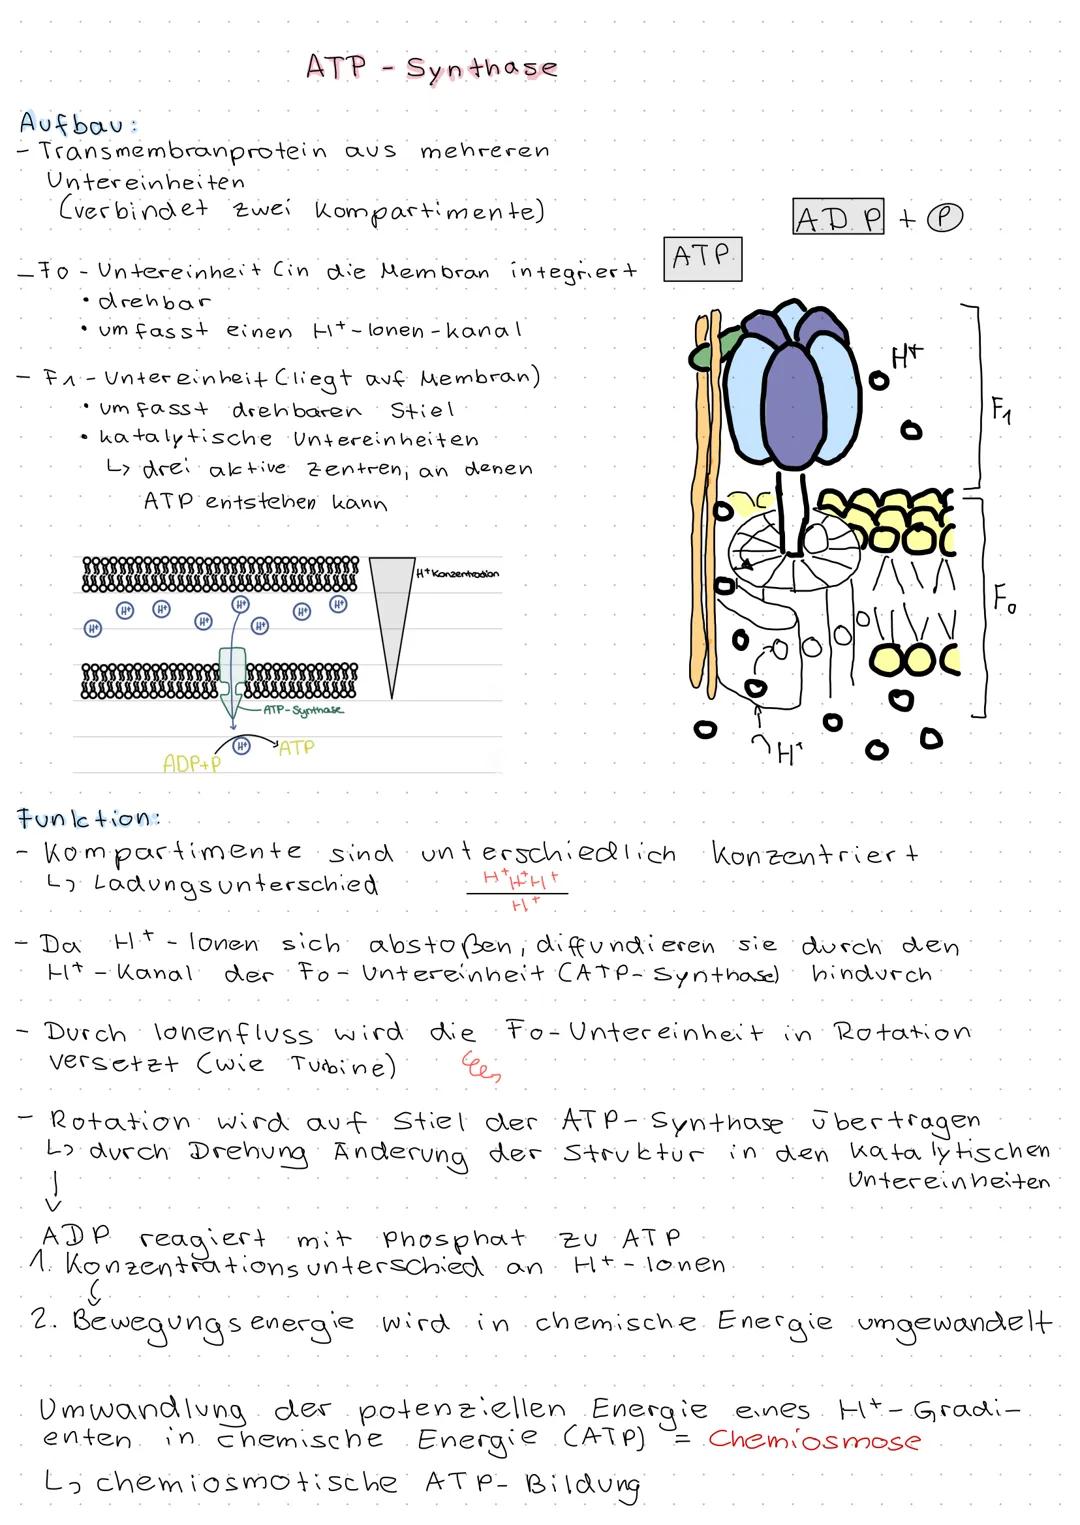 ATP - Synthase
Aufbau:
- Transmembranprotein aus mehreren
Untereinheiten
(verbindet zwei Kompartimente)
- F0 - Untereinheit (in die Membran integriert
• drehbar
• umfasst einen H+-Ionen-kanal
- F1 - Untereinheit (liegt auf Membran)
• umfasst drehbaren Stiel
• katalytische Untereinheiten
↳ drei aktive Zentren, an denen
ATP entstehen kann
ADP + P
ATP
H+
F1
F0
H+
H+ Konzentration
H+ H+ H+ H+ H+ H+ H+
ATP-Synthase
H+
ADP+P
ATP
Funktion:
- Kompartimente sind unterschiedlich konzentriert
↳ Ladungsunterschied
H+ H+ H+
H+
- Da H+ - Ionen sich abstoßen, diffundieren sie durch den
H+ - Kanal der F0 - Untereinheit (ATP- Synthase) hindurch
- Durch Ionenfluss wird die F0-Untereinheit in Rotation
versetzt (wie Turbine)
- Rotation wird auf Stiel der ATP- Synthase übertragen
↳ durch Drehung Änderung der Struktur in den katalytischen
Untereinheiten
ADP reagiert mit Phosphat zu ATP
1. Konzentrationsunterschied an H+ - Ionen
2. Bewegungsenergie wird in chemische Energie umgewandelt
Umwandlung der potenziellen Energie eines H+ - Gradi-
enten in chemische Energie (ATP) = Chemiosmose
↳ chemiosmotische ATP- Bildung